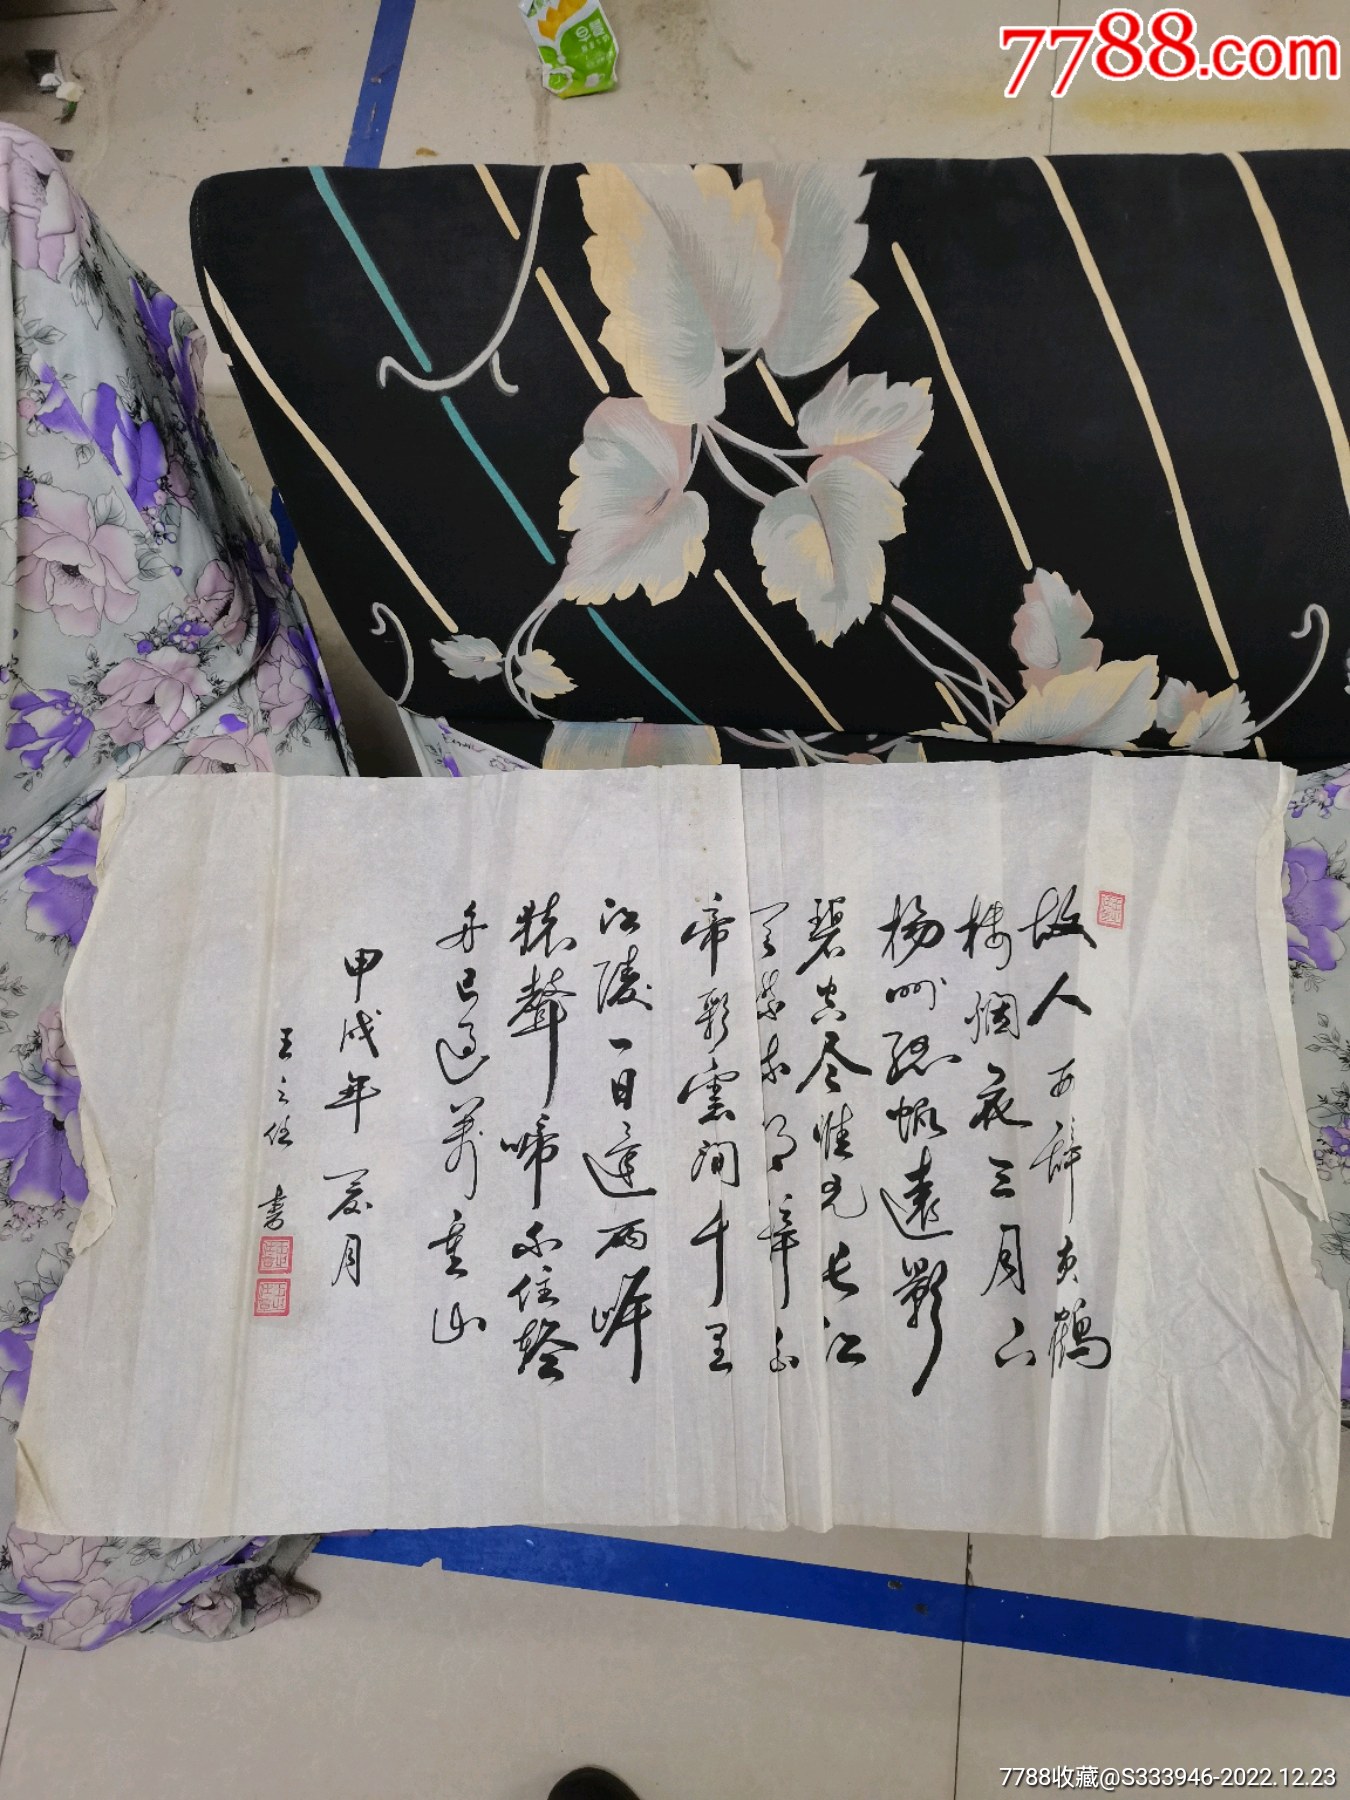 7788.com
故人西辞黄鶴
楼烟花三月下
楊州孤帆遠影
碧空尽惟见长江
天际流朝辞白
帝彩雲间千里
江陵一日還两岸
猿聲啼不住輕
舟已過萬重山
甲戌年夏月
王之任 書
7788收藏@S333946-2022.12.23